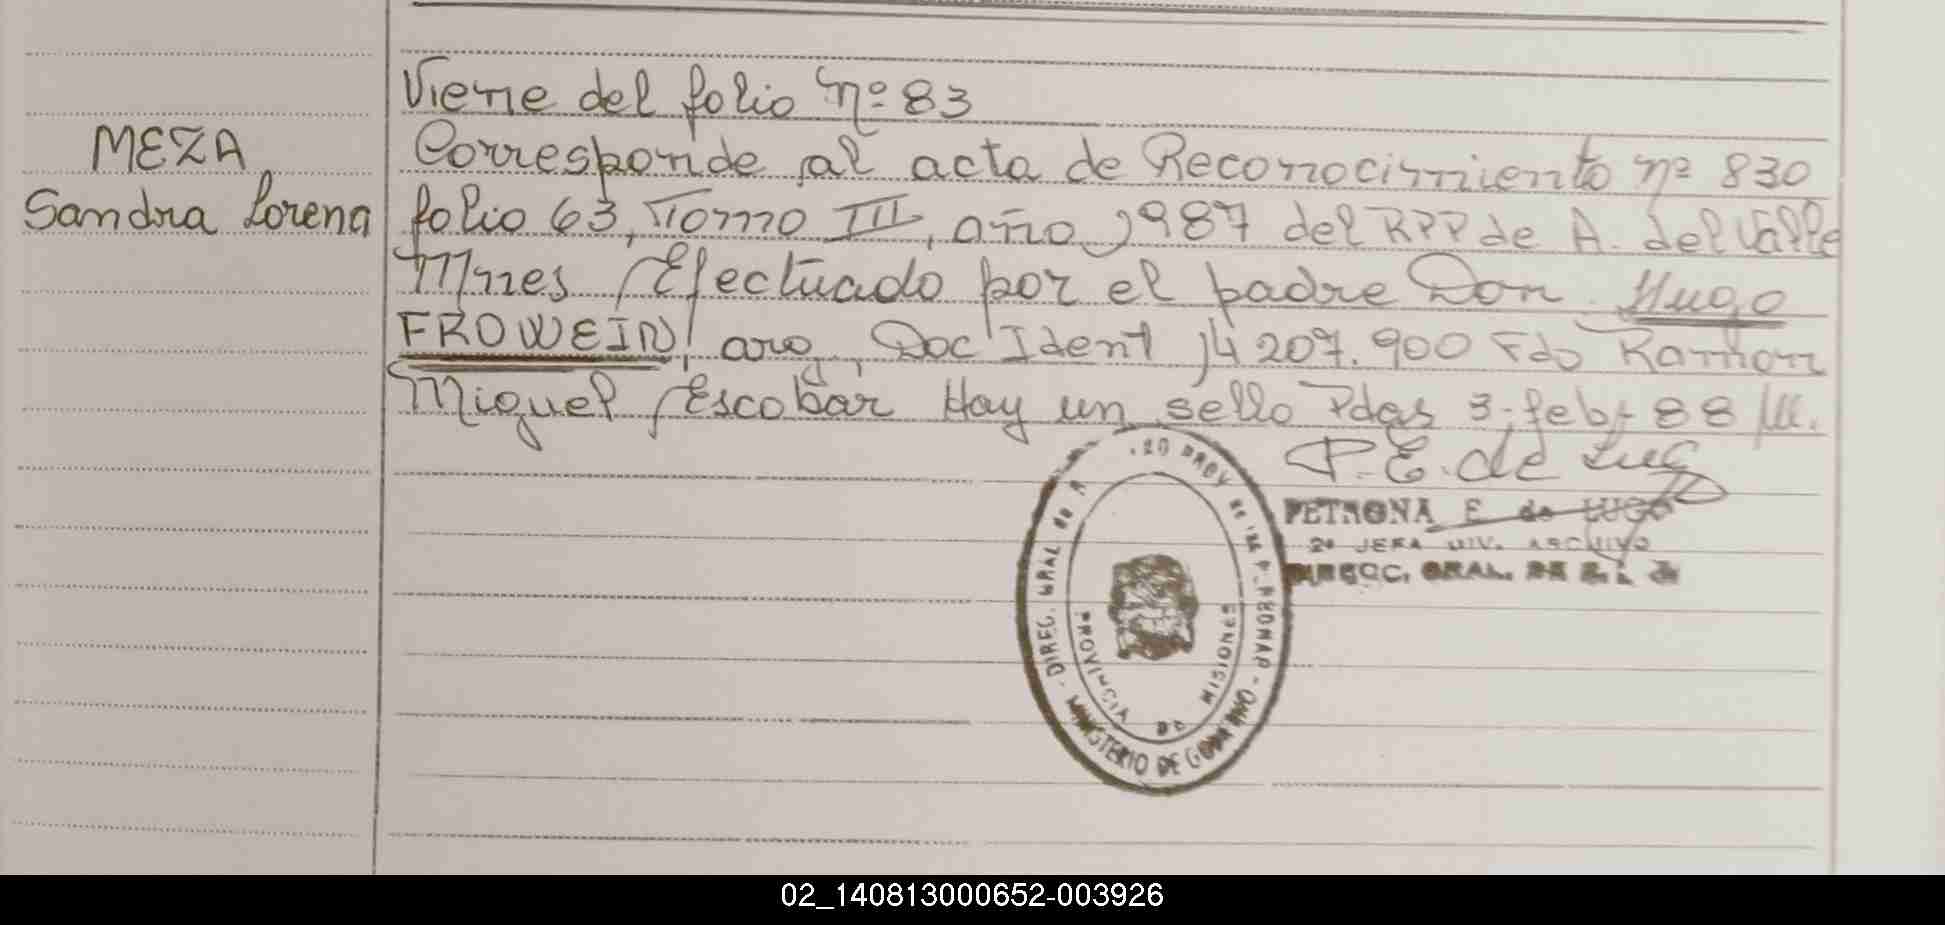 Viene del folio nº 83
MEZA
Sandra Lorena
Corresponde al acta de Reconocimiento nº 830
folio 63, Tomo III, año 1987 del RPP de A. del Valle
Mnes Efectuado por el padre Don Hugo
FROWEIN, arg, Doc Ident 14207.900 Fdo Ramon
Miguel Escobar Hay un sello Pdas 3-feb-88
P.E. de Lugo
PETRONA E de LUGO
2ª JEFA DIV. ARCHIVO
DIRECC. GRAL. DE
DIREC. GRAL de
PROV de
MINISTERIO DE GOBIERNO
PROVINCIA DE MISIONES
02_140813000652-003926